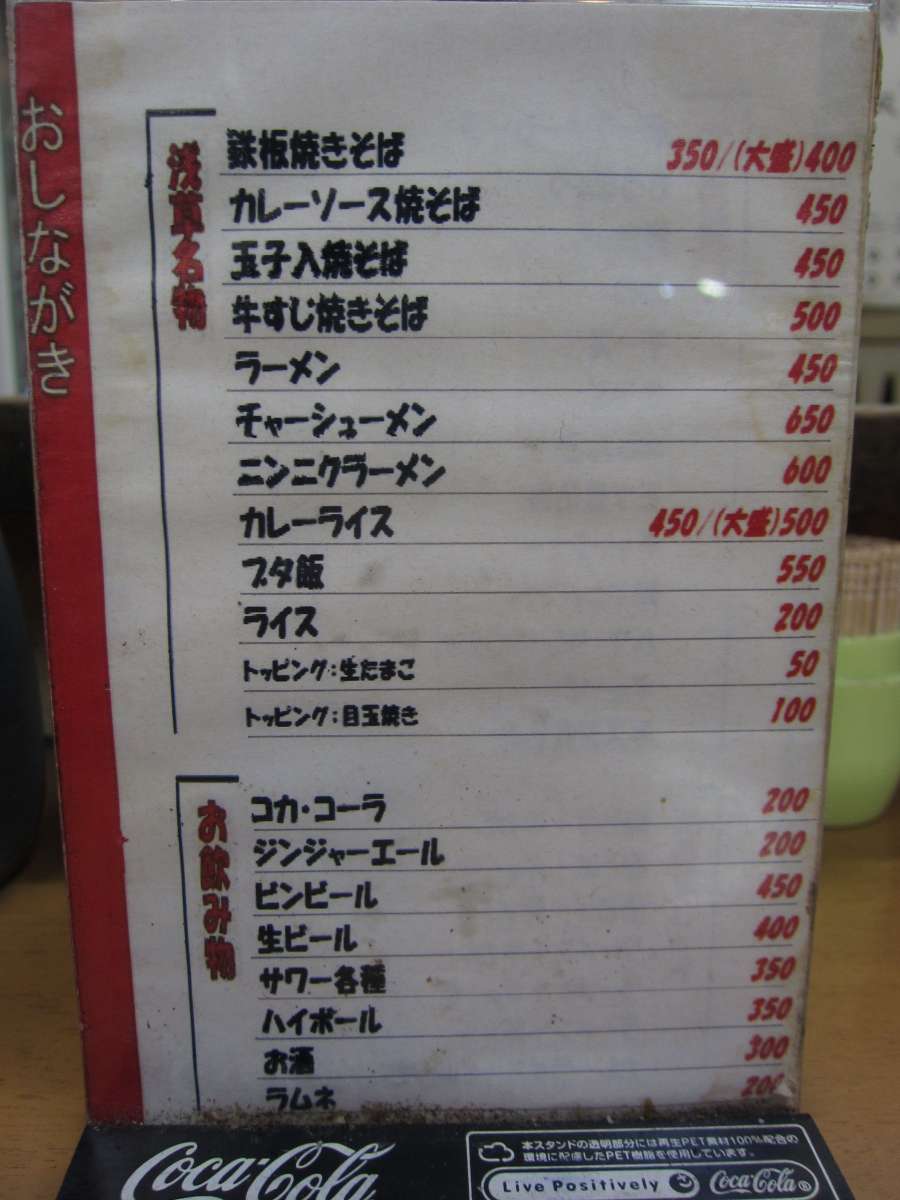 おしながき
浅草名物
鉄板焼きそば 350/(大盛)400
カレーソース焼そば 450
玉子入焼そば 450
牛すじ焼きそば 500
ラーメン 450
チャーシューメン 650
ニンニクラーメン 600
カレーライス 450/(大盛)500
ブタ飯 550
ライス 200
トッピング:生たまご 50
トッピング:目玉焼き 100
お飲み物
コカ・コーラ 200
ジンジャーエール 200
ビンビール 450
生ビール 400
サワー各種 350
ハイボール 350
お酒 300
ラムネ 200
Coca-Cola
本スタンドの透明部分には再生PET素材100%配合の
環境に配慮したPET樹脂を使用しています。
Live Positively Coca-Cola®